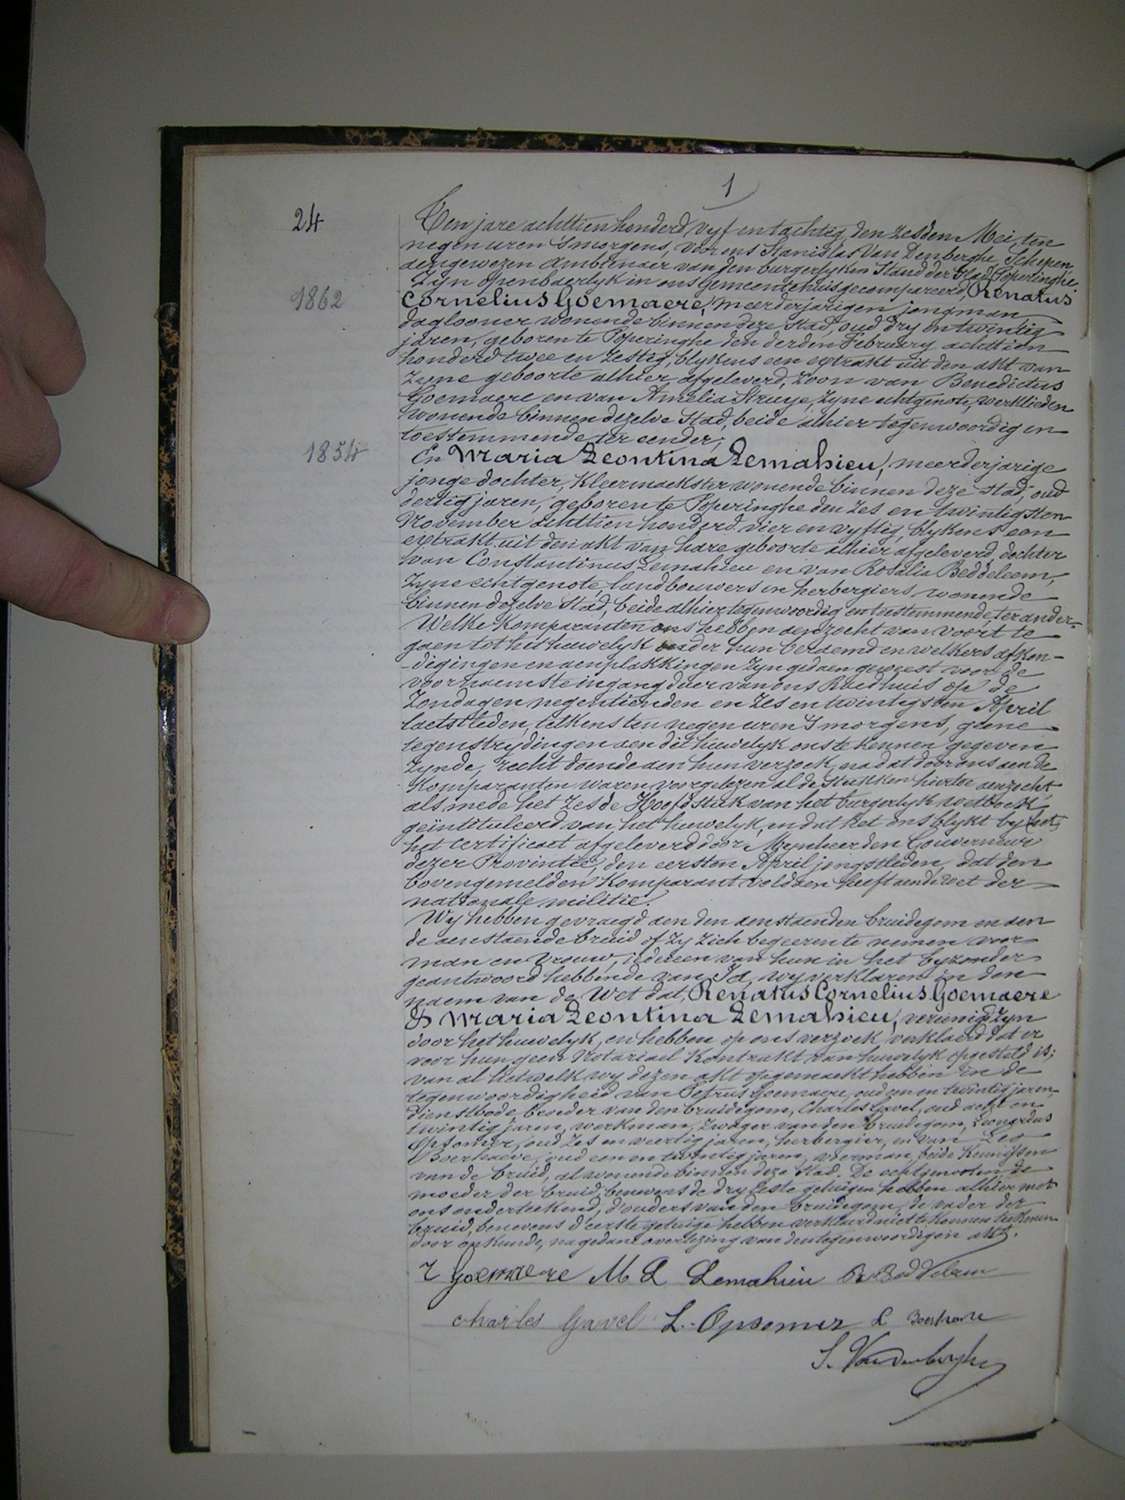 1
24
Ten jare achttien honderd vyf en tachtig den zesden Mei, ten
negen uren s'morgens, voor ons Stanislas Van Den Berghe, Schepen
aengewezen Ambtenaer van den burgerlyken Stand der Stad Poperinghe
zyn openbaerlyk in ons Gemeentehuis gecompareerd, Renatus
1862
Cornelius Goemaere, meerderjarigen jongman
daglooner wonende binnen deze stad, oud dry en twintig
jaren, geboren te Poperinghe den derden February achttien
honderd twee en zestig, blykens een extrakt uit den akt van
zyne geboorte alhier afgeleverd, zoon van Benedictus
Goemaere en van Amelia Struye, zyne echtgenote, werklieden
wonende binnen dezelve stad, beide alhier tegenwoordig en
toestemmende ter eender;
1854
En Maria Leontina Lemahieu, meerderjarige
jonge dochter, Kleermaekster wonende binnen deze stad, oud
dertig jaren, geboren te Poperinghe den zes en twintigsten
November achttien honderd vier en vyftig, blykens een
extrakt uit den akt van hare geboorte alhier afgeleverd, dochter
van Constantinus Lemahieu en van Rosalia Beddeleem,
zyne echtgenote, landbouwers en herbergiers wonende
binnen dezelve stad, beide alhier tegenwoordig en toestemmende, ter ander-
Welke Komparanten ons hebben aenzocht van voort te
gaen tot het huwelyk onder hun beraemd en welkers afkon-
-digingen en aenplakkingen zyn gedaen geweest voor de
voornaemste ingang deur van ons Raedhuis op de
Zondagen negentienden en zes en twintigsten April
laetstleden, telkens ten negen uren s'morgens, geene
tegenstrydingen aen dit huwelyk ons te kennen gegeven
zynde, recht doende aen hun verzoek, na dat door ons aen de
Komparanten waren voorgelezen al de Stukken hiertoe aenzocht
alsmede het zesde Hoofdstuk van het burgerlyk wetboek
geïntituleerd van het huwelyk, en dat het ons blykt by
het certificaet afgeleverd door Mynheer den Gouverneur
dezer Provintie, den eersten April jongstleden, dat den
bovengemelden Komparant voldaen heeft aen de wet der
nationale militie.
Wy hebben gevraegd aen den aenstaenden bruidegom en aen
de aenstaende bruid of zy zich begeeren te nemen voor
man en vrouw, iedereen van hun in het byzonder
geantwoord hebbende van Ja, wy verklaren in den
naem van de Wet dat, Renatus Cornelius Goemaere
& Maria Leontina Lemahieu, vereenigd zyn
door het huwelyk, en hebben op ons verzoek verklaerd dat er
voor hun geen Notariael Kontrakt van huwelyk opgesteld is;
van al hetwelk wy dezen akt opgemaekt hebben in de
tegenwoordigheid van Petrus Goemaere, oud een en twintig jaren,
dienstbode, broeder van den bruidegom, Charles Gavel, oud acht en
twintig jaren, werkman, zwager van den bruidegom, Leonardus
Opsomer, oud zes en veertig jaren, herbergier, en van Leo
Boerhaeve, oud een en twintig jaren, voerman, beide Kennissen
van de bruid, al wonende binnen deze stad. De echtgenooten, de
moeder der bruid, benevens de dry leste getuigen hebben alhier met
ons onderteekend, d'ouders van den bruidegom, de vader der
bruid, benevens d'eerste getuige hebben verklaerd niet te konnen teekenen
door onkunde, na gedane overlezing van den tegenwoordigen akt.
R Goemaere M L Lemahieu
Charles Gavel L. Opsomer L Boerhave
S. Vandenberghe